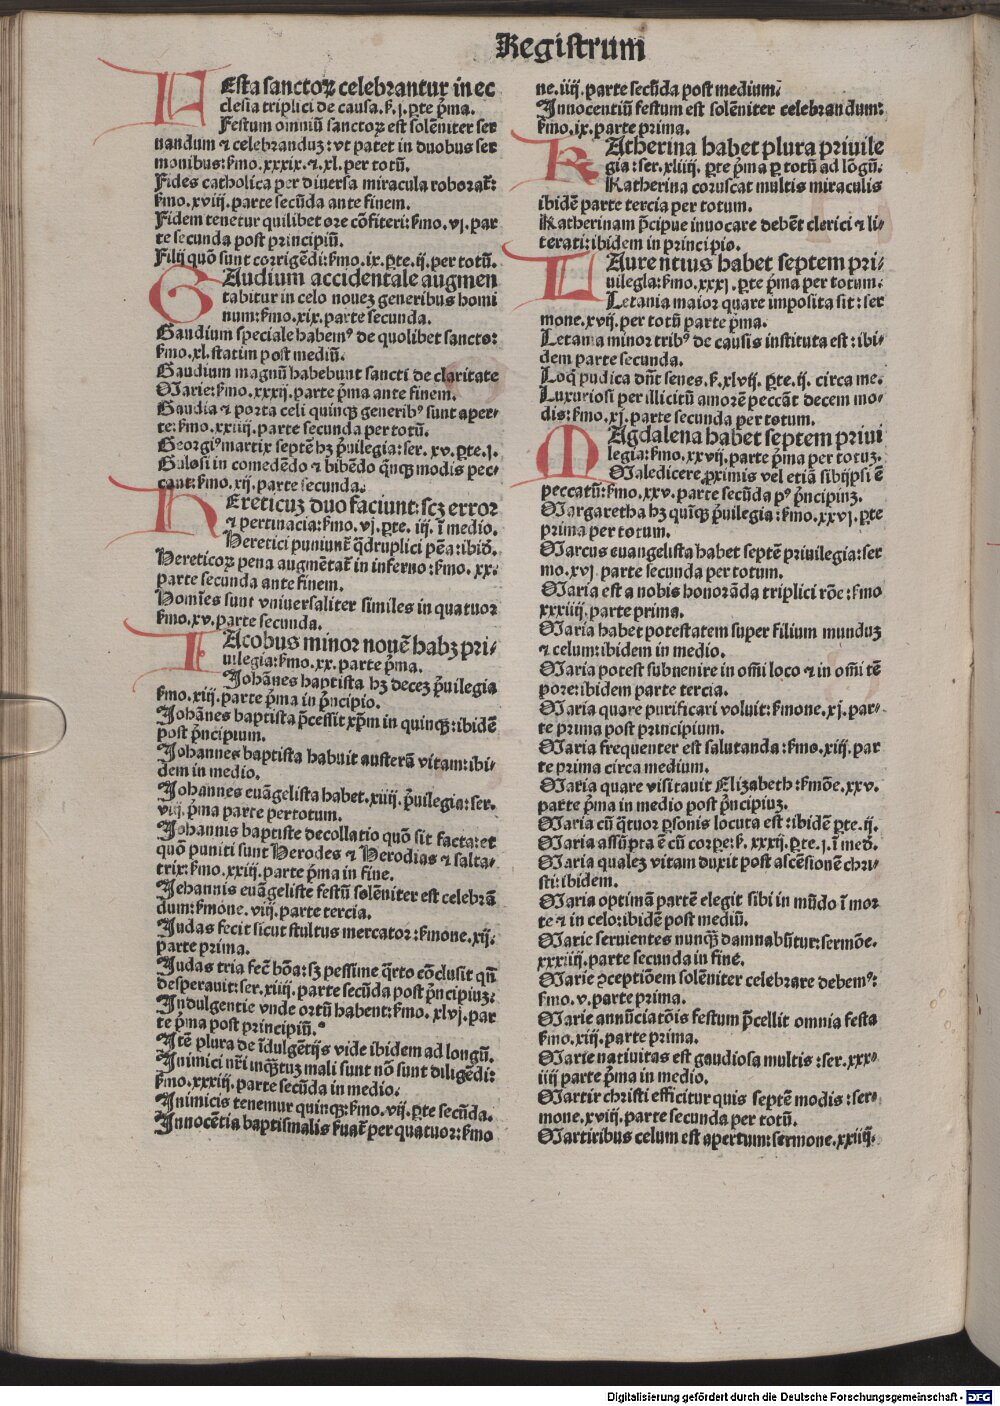 Registrum
FEsta sanctoꝝ celebrantur in ec
clesia triplici de causa. ẜ. j. ꝑte p̃ma.
Festum omniũ sanctoꝝ est solẽniter ser
uandum ⁊ celebranduꝫ: vt patet in duobus ser
monibus: ẜmo. xxxix. ⁊. xl. per totũ.
Fides catholica per diuersa miracula roborat̃:
ẜmo. xviij. parte secũda ante finem.
Fidem tenetur quilibet ore cõfiteri: ẜmo. vj. par
te secunda post principiũ.
Filij quõ sunt corrigẽdi: ẜmo. ix. ꝑte. ij. per totũ.
GAudium accidentale augmen
tabitur in celo noueꝫ generibus homi
num: ẜmo. xix. parte secunda.
Gaudium speciale habemꝰ de quolibet sancto:
ẜmo. xl. statim post mediũ.
Gaudium magnũ habebunt sancti de claritate
Marie: ẜmo. xxxij. parte p̃ma ante finem.
Gaudia ⁊ porta celi quinqꝫ generibꝰ sunt aper-
te: ẜmo. xxiiij. parte secunda per totũ.
Georgiꝰ martir septẽ hꝫ p̃uilegia: ser. xv. ꝑte. j.
Gulosi in comedẽdo ⁊ bibẽdo q̃nqꝫ modis pec-
cant: ẜmo. xij. parte secunda.
HEreticuꝫ duo faciunt: scꝫ error
⁊ pertinacia: ẜmo. vj. ꝑte. iij. ĩ medio.
Heretici puniunt̃ q̃druplici pẽa: ibid̃.
Hereticoꝝ pena augmẽtat̃ in inferno: ẜmo. xx.
parte secunda ante finem.
Homĩes sunt vniuersaliter similes in quatuor
ẜmo. xv. parte secunda.
IAcobus minor nouẽ habꝫ pri-
uilegia: ẜmo. xx. parte p̃ma.
Johãnes baptista hꝫ deceꝫ p̃uilegia
ẜmo. xiij. parte p̃ma in p̃ncipio.
Johãnes baptista p̃cessit xp̃m in quinqꝫ: ibidẽ
post p̃ncipium.
Johannes baptista habuit austerã vitam: ibi-
dem in medio.
Johannes euãgelista habet. xiiij. p̃uilegia: ser.
viij. p̃ma parte per totum.
Johannis baptiste decollatio quõ sit facta: et
quõ puniti sunt Herodes ⁊ Herodias ⁊ salta-
trix: ẜmo. xxiij. parte p̃ma in fine.
Jehannis euãgeliste festũ solẽniter est celebrã
dum: ẜmone. viij. parte tercia.
Judas fecit sicut stultus mercator: ẜmone. xij.
parte prima.
Judas tria fec̃ bõa: sꝫ pessime q̃rto cõclusit qñ
desperauit: ser. xiiij. parte secũda post p̃ncipiuꝫ.
Indulgentie vnde ortũ habent: ẜmo. xlvj. par
te p̃ma post principiũ.
Itẽ plura de ĩdulgẽtijs vide ibidem ad longũ.
Inimici nr̃i inq̃ꝫtuꝫ mali sunt nõ sunt diligẽdi:
ẜmo. xxxiij. parte secũda in medio.
Inimicis tenemur quinqꝫ: ẜmo. vij. ꝑte secũda.
Innocẽtia baptismalis ẜuat̃ per quatuor: ẜmo
ne. iiij. parte secũda post medium.
Innocentiũ festum est solẽniter celebrandum:
ẜmo. ix. parte prima.
KAtherina habet plura priuile
gia: ser. xliiij. ꝑte p̃ma ꝑ totũ ad lõgũ.
Katherina coruscat multis miraculis
ibidẽ parte tercia per totum.
Katherinam p̃cipue inuocare debẽt clerici ⁊ li-
terati: ibidem in principio.
LAurentius habet septem pri-
uilegia: ẜmo. xxxj. ꝑte p̃ma per totum.
Letania maior quare imposita sit: ser
mone. xvij. per totũ parte p̃ma.
Letania minor tribꝰ de causis instituta est: ibi-
dem parte secunda.
Loq̃ pudica dñt senes. ẜ. xlvij. ꝑte. ij. circa me.
Luxuriosi per illicitũ amorẽ peccãt decem mo-
dis: ẜmo. xj. parte secunda per totum.
MAgdalena habet septem priui
legia: ẜmo. xxvij. parte p̃ma per totuꝫ.
Maledicere proximis vel etiã sibijpsi ẽ
peccatũ: ẜmo. xxv. parte secũda pꝰ p̃ncipiuꝫ.
Margaretha hꝫ quĩqꝫ p̃uilegia: ẜmo. xxvj. ꝑte
prima per totum.
Marcus euangelista habet septẽ priuilegia: ser
mo. xvj. parte secunda per totum.
Maria est a nobis honorãda triplici rõe: ẜmo
xxxiiij. parte prima.
Maria habet potestatem super filium munduꝫ
⁊ celum: ibidem in medio.
Maria potest subuenire in om̃i loco ⁊ in om̃i tẽ
pore: ibidem parte tercia.
Maria quare purificari voluit: ẜmone. xj. par-
te prima post principium.
Maria frequenter est salutanda: ẜmo. xiij. par
te prima circa medium.
Maria quare visitauit Elizabeth: ẜmõe. xxv.
parte p̃ma in medio post p̃ncipiuꝫ.
Maria cũ q̃tuor ꝑsonis locuta est: ibidẽ ꝑte. ij.
Maria assũpta ẽ cũ corꝑe: ẜ. xxxij. ꝑte. j. ĩ med̃.
Maria qualeꝫ vitam duxit post ascẽsionẽ chri-
sti: ibidem.
Maria optimã partẽ elegit sibi in mũdo ĩ mor
te ⁊ in celo: ibidẽ post mediũ.
Marie seruientes nunq̃ꝫ damnabũtur: sermõe.
xxxiij. parte secunda in fine.
Marie ꝯceptiõem solẽniter celebrare debemꝰ:
ẜmo. v. parte prima.
Marie annũciatõis festum p̃cellit omnia festa
ẜmo. xiij. parte prima.
Marie natiuitas est gaudiosa multis: ser. xxx-
iiij parte p̃ma in medio.
Martir christi efficitur quis septẽ modis: ser-
mone. xviij. parte secunda per totũ.
Martiribus celum est apertum: sermone. xxiiij.
Digitalisierung gefördert durch die Deutsche Forschungsgemeinschaft - DFG